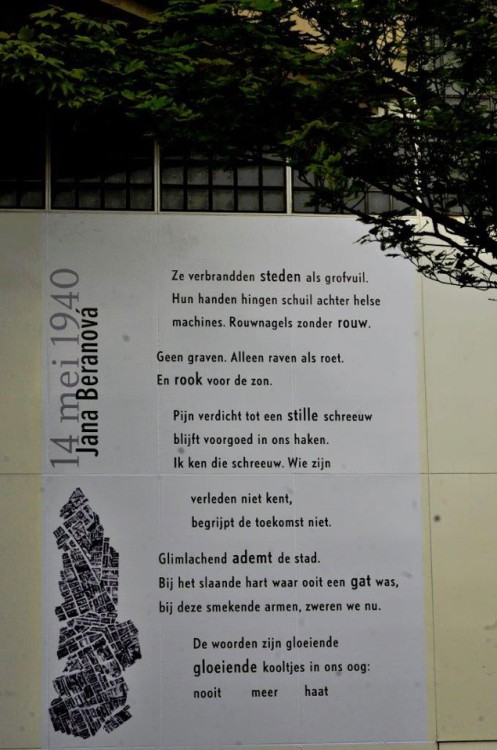 14 mei 1940
Jana Beranová
Ze verbrandden steden als grofvuil.
Hun handen hingen schuil achter helse
machines. Rouwnagels zonder rouw.
Geen graven. Alleen raven als roet.
En rook voor de zon.
Pijn verdicht tot een stille schreeuw
blijft voorgoed in ons haken.
Ik ken die schreeuw. Wie zijn
verleden niet kent,
begrijpt de toekomst niet.
Glimlachend ademt de stad.
Bij het slaande hart waar ooit een gat was,
bij deze smekende armen, zweren we nu.
De woorden zijn gloeiende
gloeiende kooltjes in ons oog:
nooit meer haat